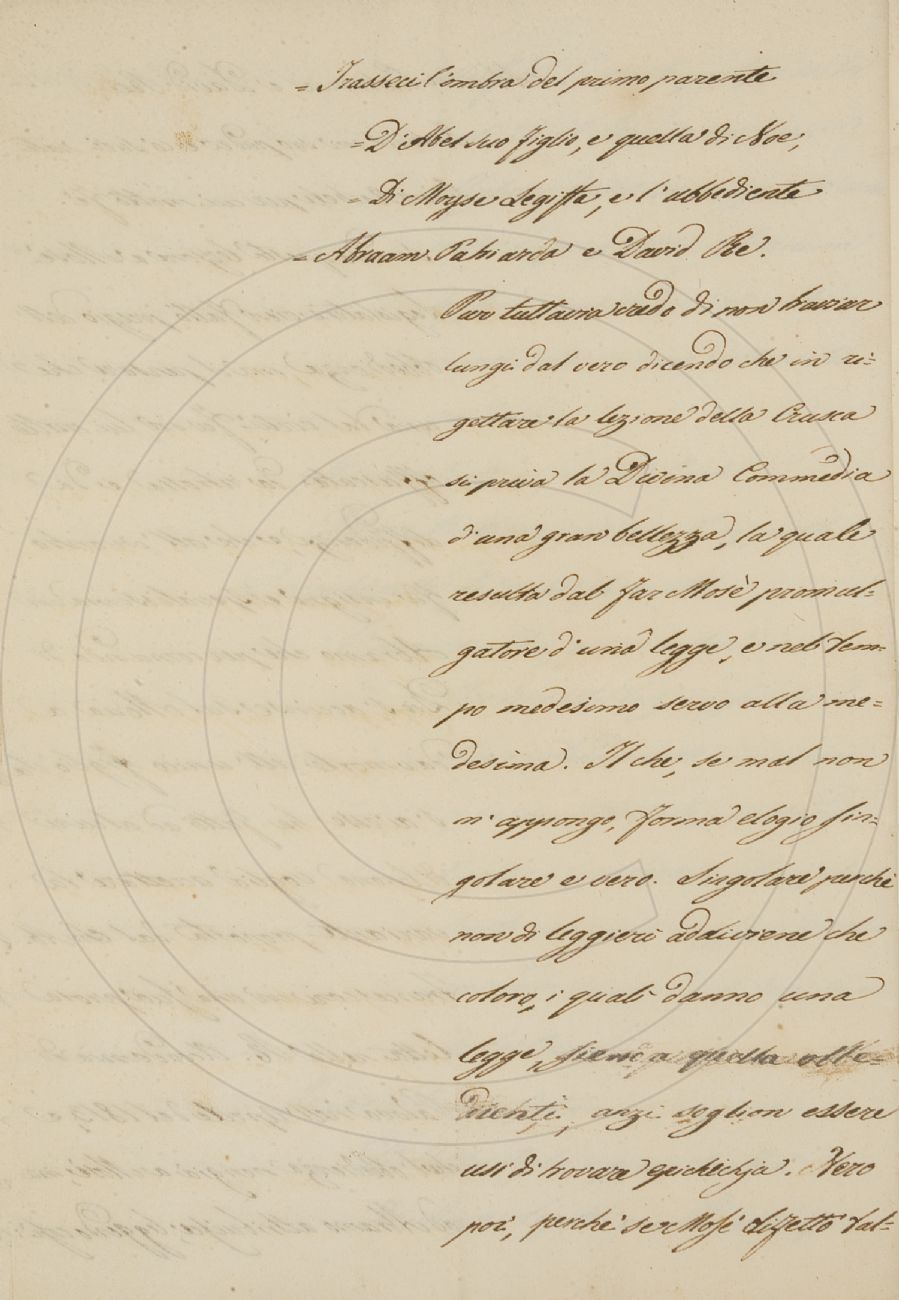 = Trasseci l'ombra del primo parente
= D'Abel suo figlio, e quella di Noe,
= Di Moyse Legista, e l'ubbediente
= Abraam Patriarca e David Re.
Pur tuttavia credo di non traviar
lungi dal vero dicendo che in ri=
gettare la lezione della Crusca
si priva la Divina Commedia
d'una gran bellezza, la quale
resulta dal far Mosè promul=
gatore d'una legge, e nel tem=
po medesimo servo alla me=
desima. Il che, se mal non
m'appongo, forma elogio sin=
golare e vero. Singolare perchè
non di leggieri addiviene che
coloro, i quali danno una
legge, sieno a quella obbe=
dienti, anzi soglion essere
usi di trovare epicheja. Vero
poi, perchè se Mosè difettò tal=